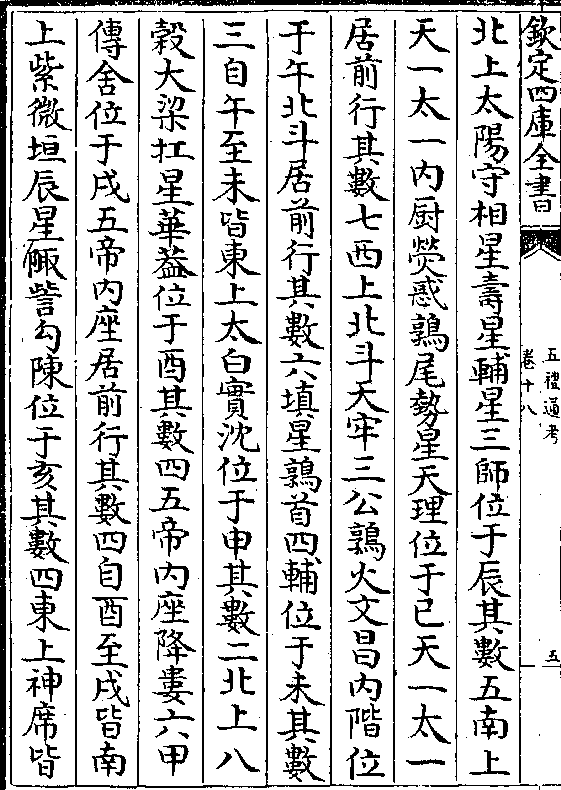 欽定四庫全書
五禮通考
卷十八
五
北上太陽守相星壽星輔星三師位于辰其數五南上
天一太一内厨熒惑鶉尾勢星天理位于巳天一太一
居前行其數七西上北斗天牢三公鶉火文昌内階位
于午北斗居前行其數六填星鶉首四輔位于未其數
三自午至未皆東上太白實沈位于申其數二北上八
穀大梁扛星華葢位于酉其數四五帝内座降婁六甲
傳舍位于戌五帝内座居前行其數四自酉至戌皆南
上紫微垣辰星陬訾勾陳位于亥其數四東上神席皆